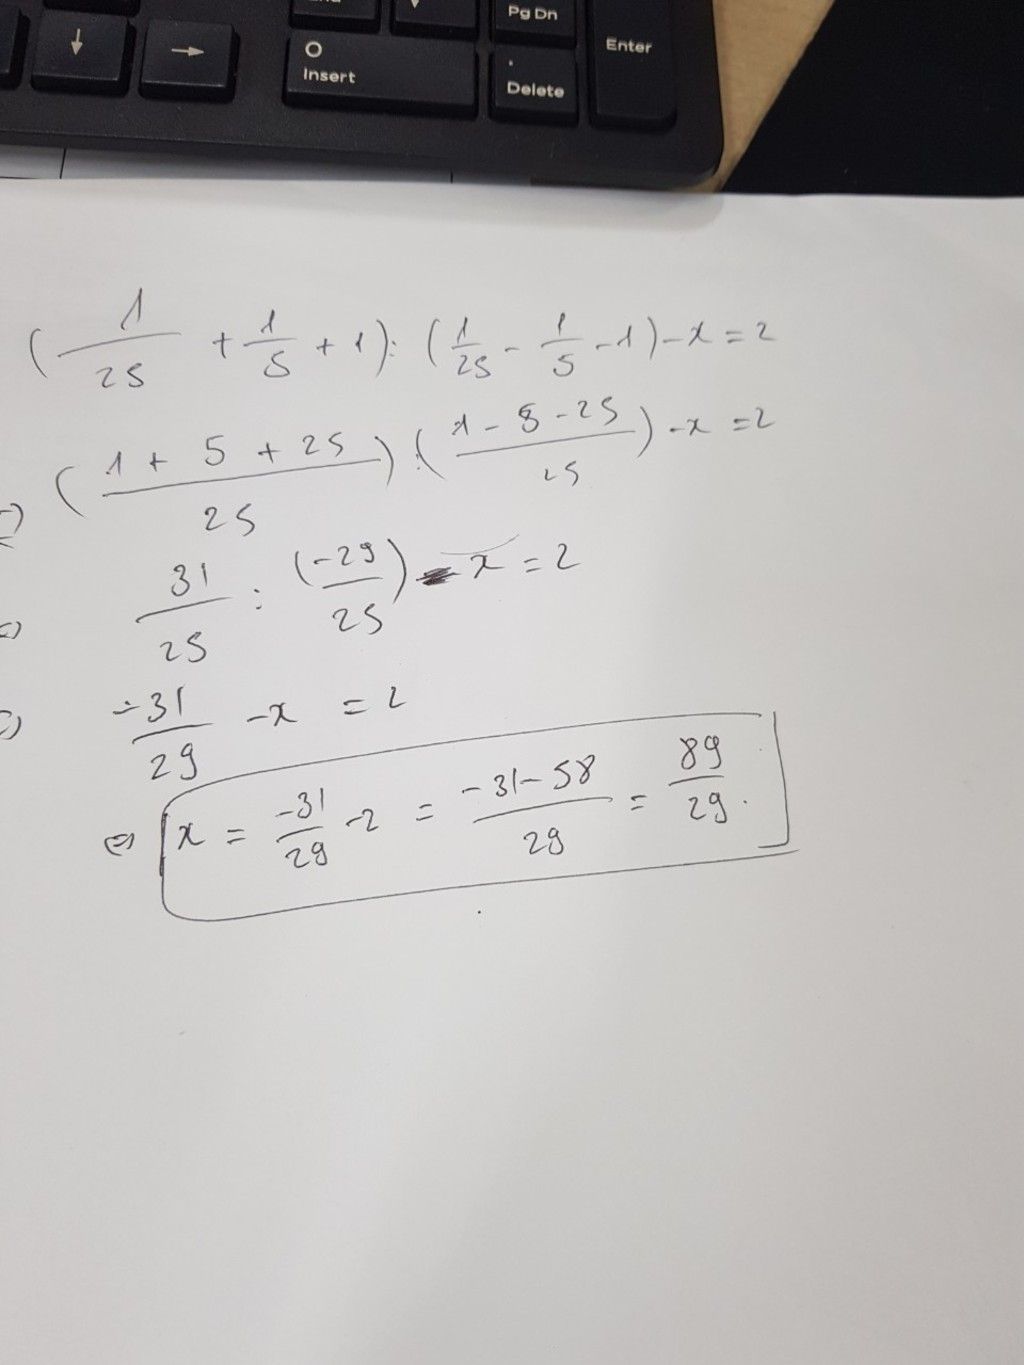 Pg Dn
Enter
0
Insert
.
Delete
(1/25 + 1/5 + 1) : (1/25 - 1/5 - 1) - x = 2
(1 + 5 + 25/25) : (1 - 5 - 25/25) - x = 2
31/25 : (-29/25) - x = 2
-31/29 - x = 2
(=) x = -31/29 - 2 = -31 - 58/29 = 89/29.